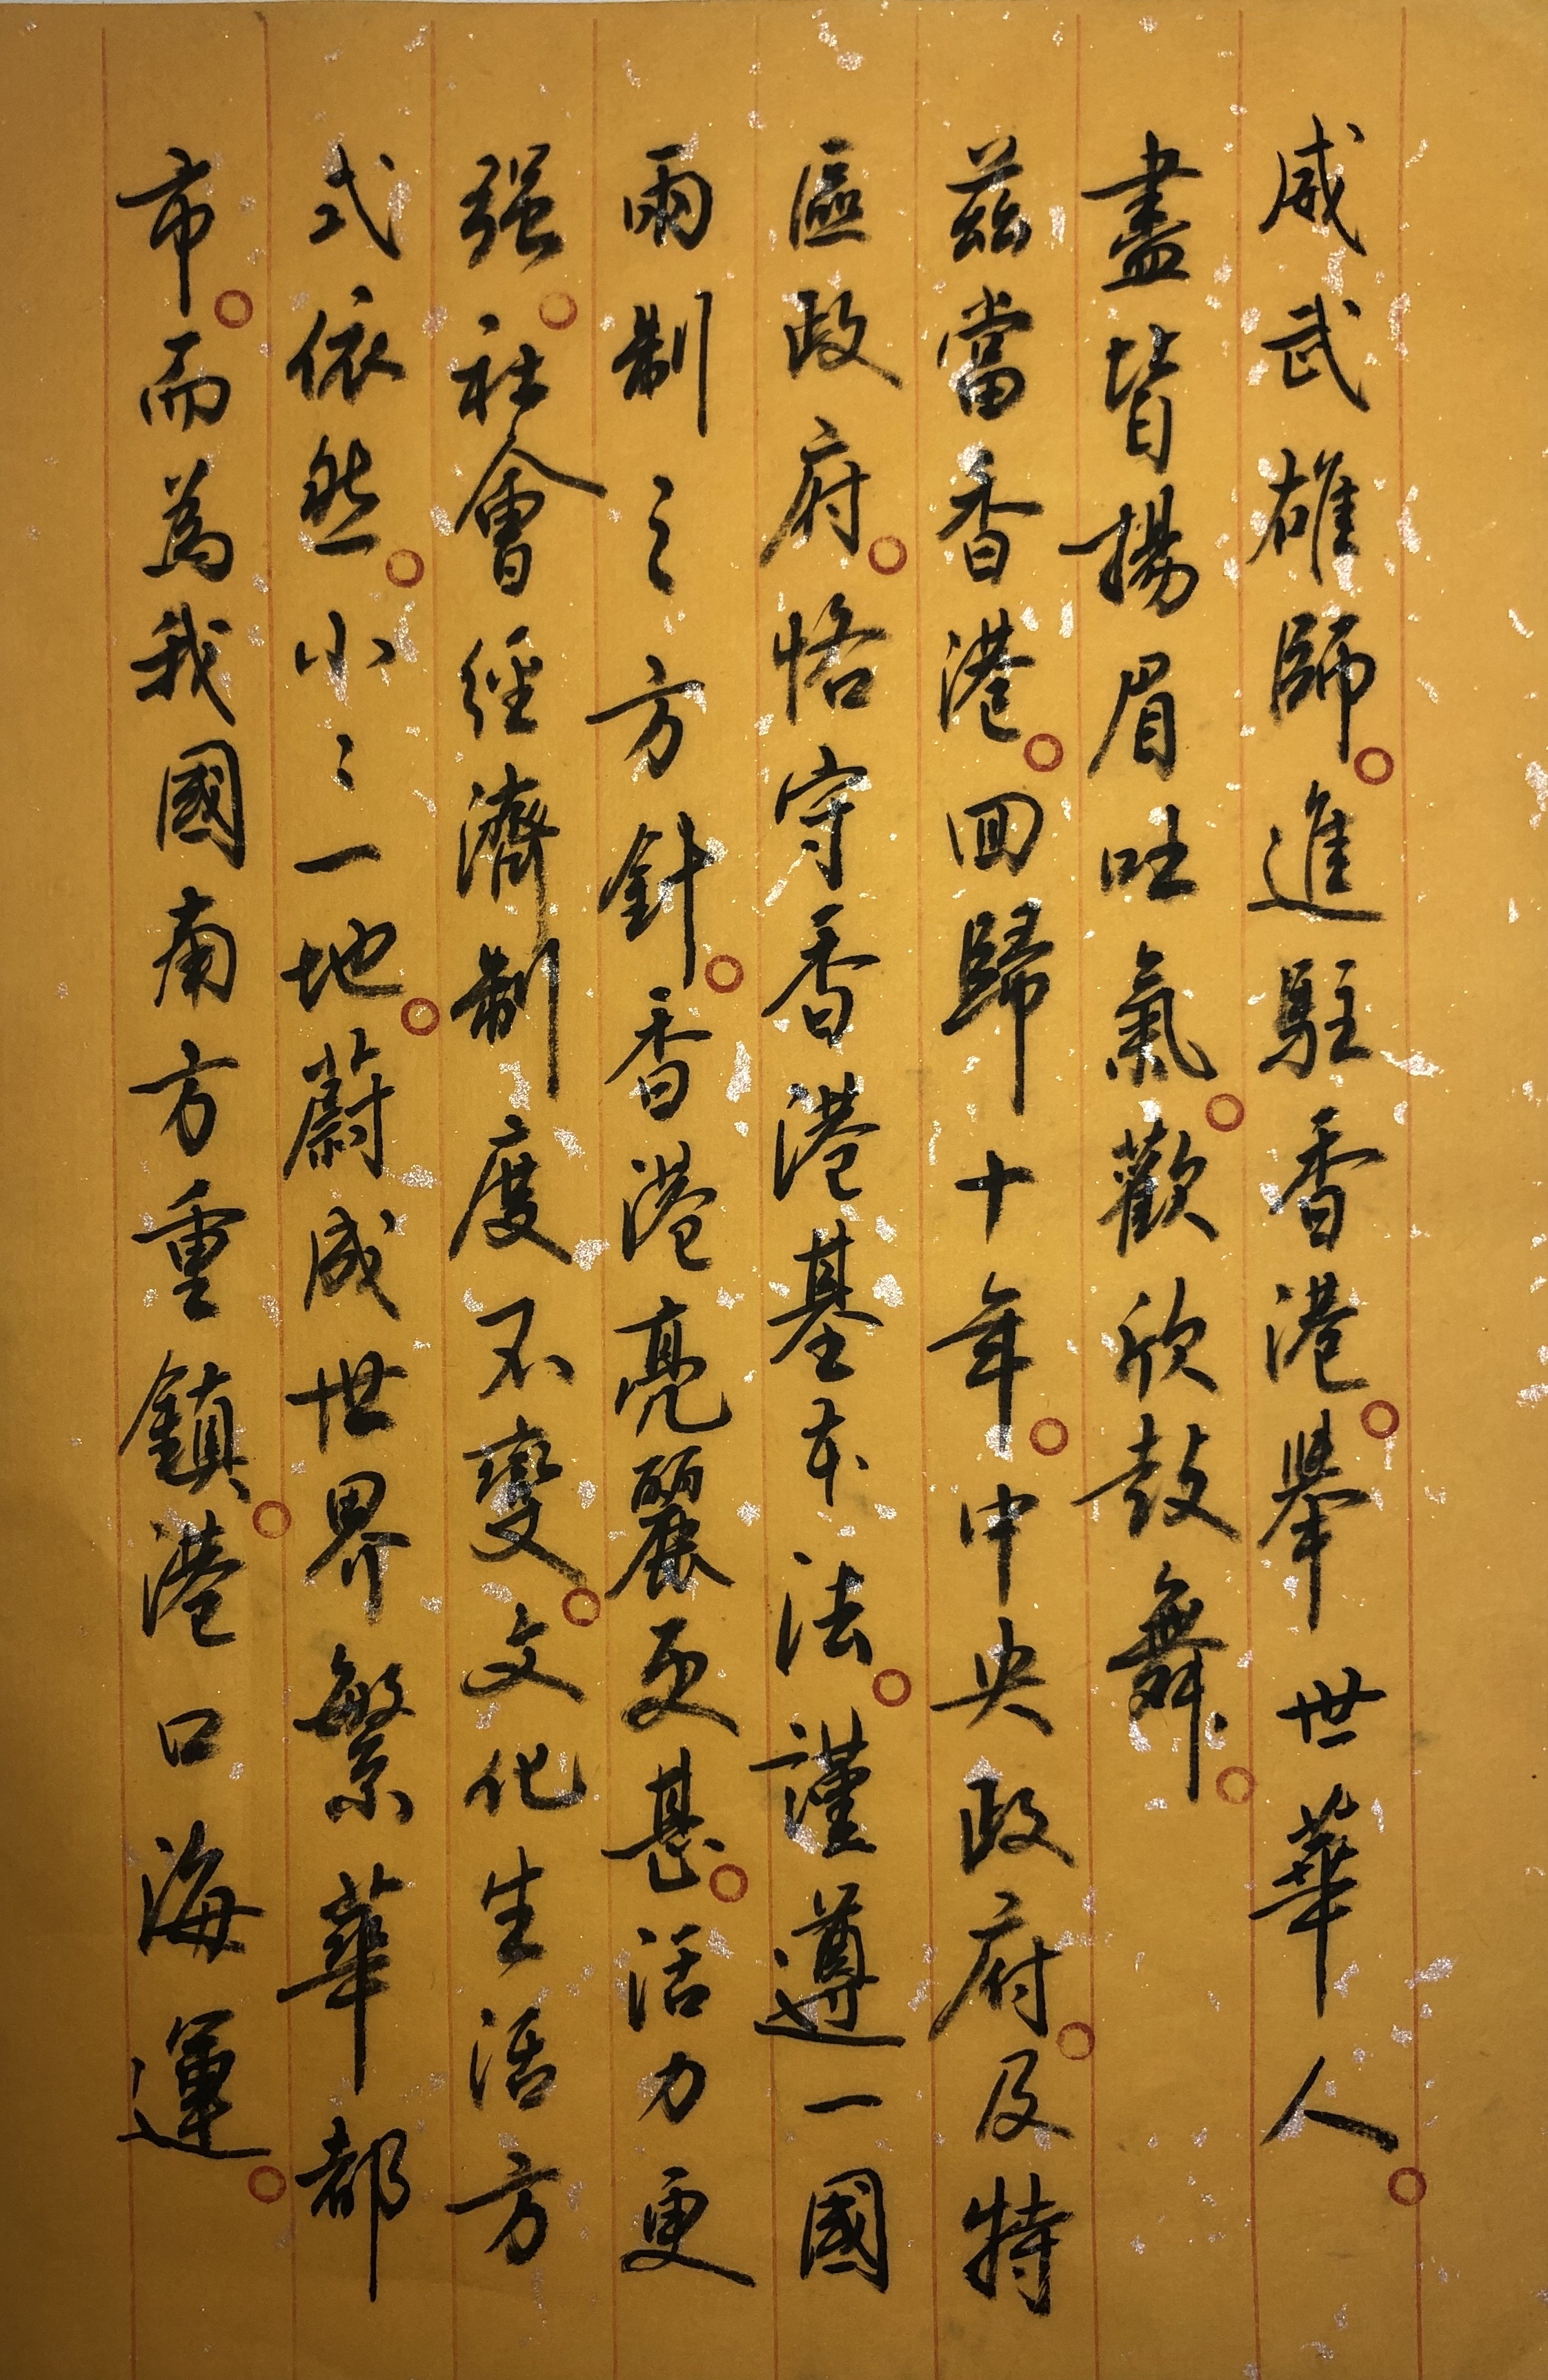 威武雄師。進駐香港。舉世華人。
盡皆揚眉吐氣。歡欣鼓舞。
茲當香港。回歸十年。中央政府。及特
區政府。恪守香港基本法。謹遵一國
兩制之方針。香港亮麗更甚。活力更
强。社會經濟制度不變。文化生活方
式依然。小々一地。蔚成世界繁華都
市。而為我國南方重鎮。港口海運。